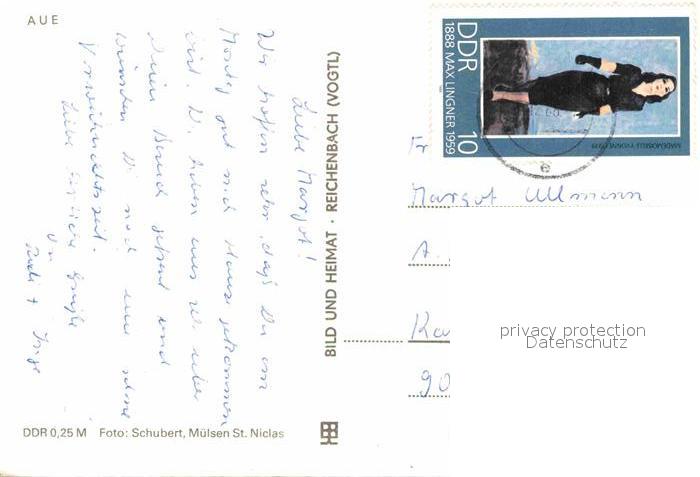 AUE
Liebe Margot!
Wir hoffen sehr, daß Du am
Montag gut nach Hause gekommen
bist. Wir haben uns sehr über
Deinen Besuch gefreut und
wünschen Dir noch eine schöne
Vorweihnachtszeit.
Liebe Grüße
+ Inge
BILD UND HEIMAT · REICHENBACH (VOGTL)
DDR 0,25 M Foto: Schubert, Mülsen St. Niclas
DDR 10
1888 MAX LINGNER 1959
MADEMOISELLE YVONNE (1939)
Fr
Margot Ullmann
A.
Ka
90
privacy protection
Datenschutz